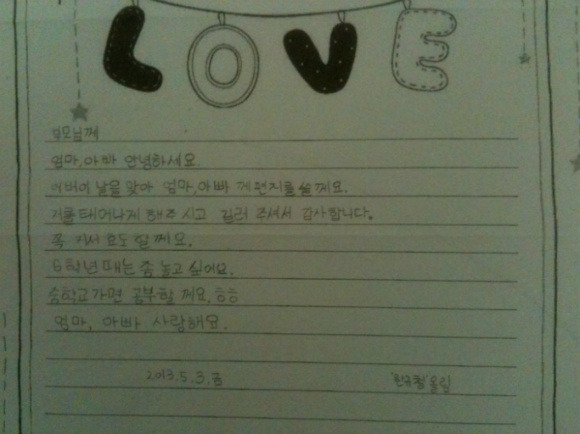 LOVE
부모님께
엄마, 아빠 안녕하세요.
어버이 날을 맞아 엄마, 아빠 께 편지를 쓸 께요.
저를 태어나게 해 주시고 길러 주셔서 감사합니다.
꼭 커서 효도 할 께요.
6학년 때는 좀 놀고 싶어요.
중학교 가면 공부할 께요, ㅎㅎ
엄마, 아빠 사랑해요.
2013.5.3.금 올림